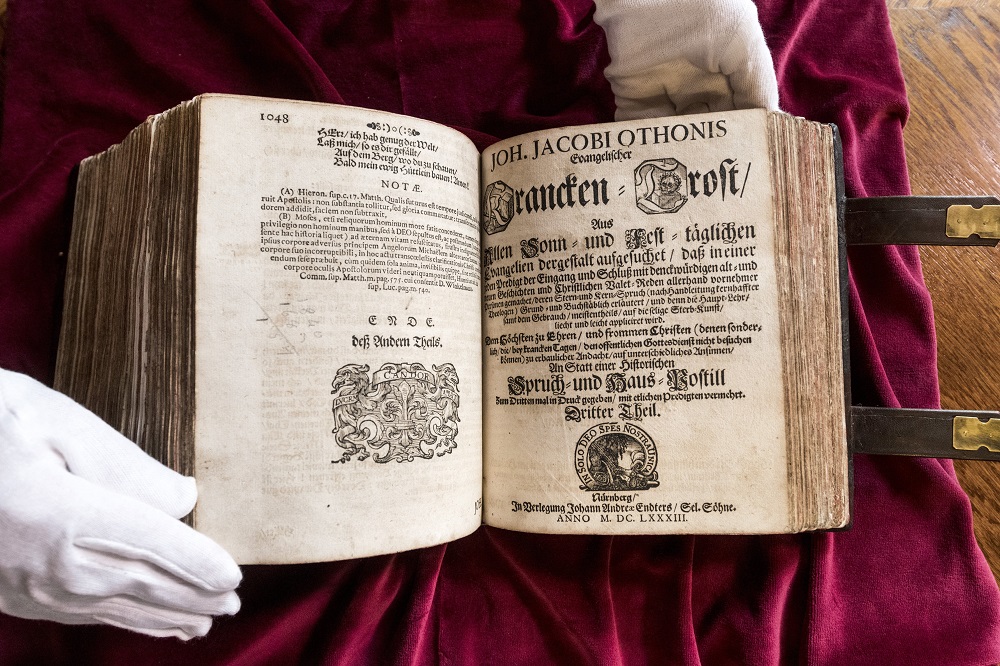 1048
HErr/ ich hab genug der Welt/
Laß mich/ so es dir gefällt/
Auf dem Berg/ wo du zu schauen/
Bald mein ewig Hüttlein bauen! Amen!
NOTÆ.
(A) Hieron. sup. c. 17. Matth. Qualis futurus est tempore
ruit Apostolis: non substantia tollitur, sed gloria commutatur:
dorem addidit, faciem non subtraxit.
(B) Moses, etsi reliquorum hominum more
privilegio non hominum manibus, sed à DEO sepultus est, ac
hac historia liquet) ad æternam vitam
ipsius corpore adversus principem Angelorum Michaelem
corpore suo incorruptibili, in hoc actu
endum sese præbuit, cum quidem sola anima, invisibilis
corpore oculis Apostolorum videri
Comm. sup. Matth. m. pag. 575. cui consentit D. Winckelmann.
sup. Luc. pag. m. 540.
ENDE
deß Andern Theils.
CANDOR
JOH. JACOBI OTHONIS
Evangelischer
Krancken-Trost/
Aus
Allen Sonn- und Fest-täglichen
Evangelien dergestalt aufgesuchet/ daß in einer
Predigt der Eingang und Schluß mit denckwürdigen alt- und
neuen Geschichten und Christlichen Valet-Reden allerhand vornehmer
Personen gemachet/ deren Stern- und Kern-Spruch (nach Handleitung kernhaffter
Theologen) Grund- und Buchstäblich erläutert/ und denn die Haupt-Lehr/
samt dem Gebrauch/ meistentheils/ auf die selige Sterb-Kunst/
liecht und leicht appliciret wird.
Dem Höchsten zu Ehren/ und frommen Christen (denen sonder-
lich/ die/ bey krancken Tagen/ den öffentlichen Gottesdienst nicht besuchen
können) zu erbaulicher Andacht/ auf unterschiedliches Ansinnen/
An Statt einer Historischen
Spruch- und Haus-Postill
Zum Dritten mal in Druck gegeben/ mit etlichen Predigten vermehrt.
Dritter Theil.
IN SOLO DEO SPES NOSTRA UNICA
Nürnberg/
In Verlegung Johann Andreæ Endters/ Sel. Söhne.
ANNO M. DC. LXXXIII.